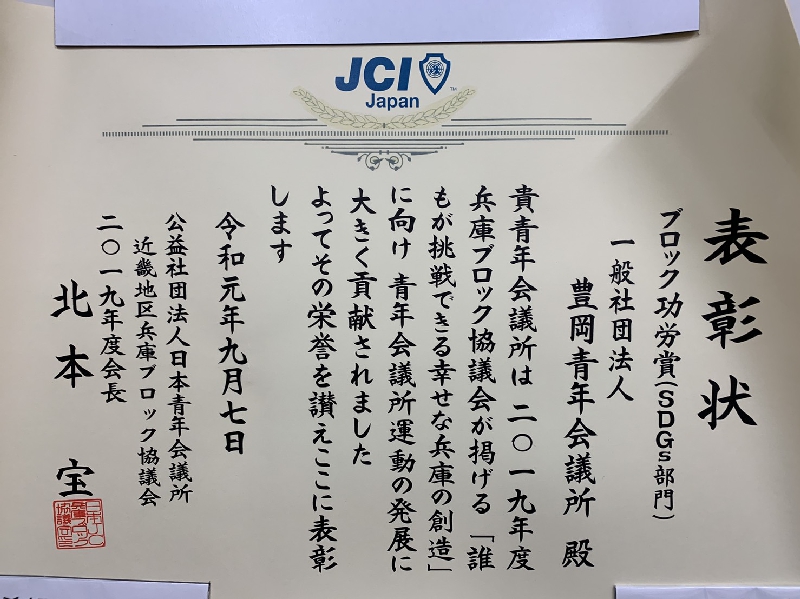 JCI
Japan
表彰状
ブロック功労賞(SDGs部門)
一般社団法人
豊岡青年会議所 殿
貴青年会議所は二〇一九年度
兵庫ブロック協議会が掲げる「誰
もが挑戦できる幸せな兵庫の創造」
に向け 青年会議所運動の発展に
大きく貢献されました
よってその栄誉を讃えここに表彰
します
令和元年九月七日
公益社団法人日本青年会議所
近畿地区兵庫ブロック協議会
二〇一九年度会長
北本 宝